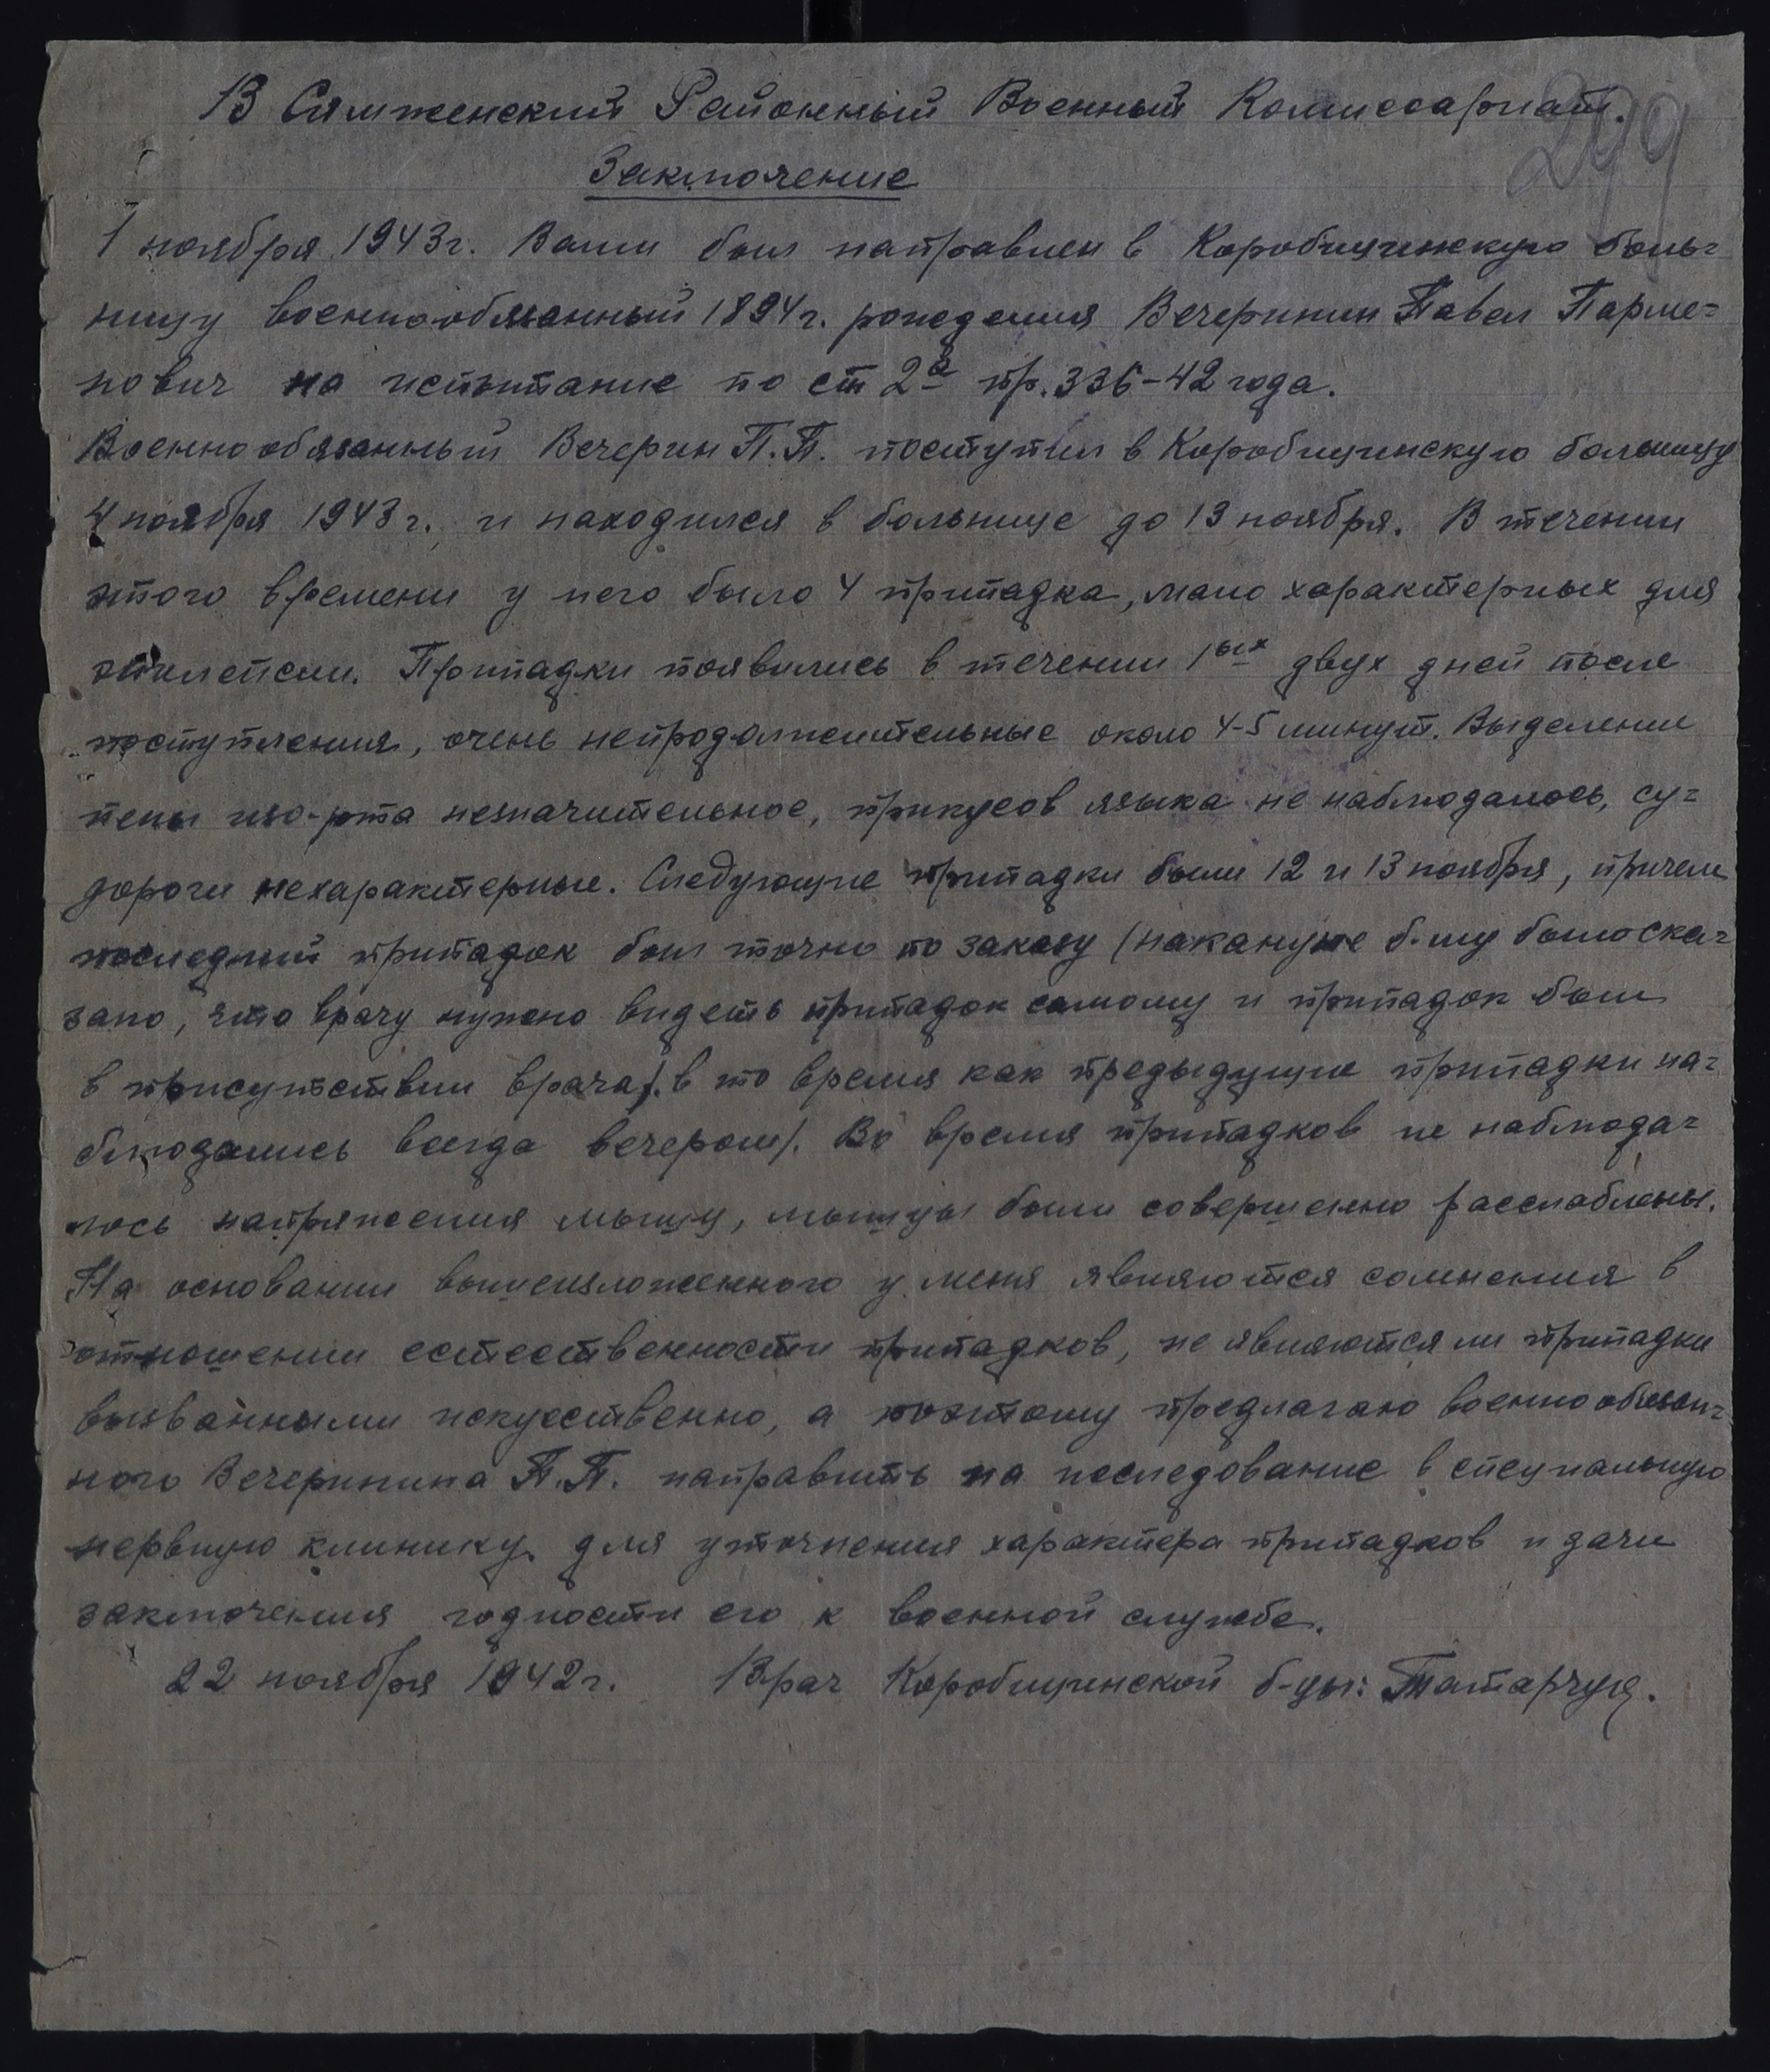 299
В Сямженский Районный Военный Комиссариат.
Заключение
1 ноября 1943г. Вами был направлен в Коробицинскую боль=
ницу военнообязанный 1894г. рождения Вечеринин Павел Парме=
нович на испытание по ст 2а пр. 336-42 года.
Военнообязанный Вечерин П.П. поступил в Коробицинскую больницу
4 ноября 1943г. и находился в больнице до 13 ноября. В течении
этого времени у него было 4 припадка, мало характерных для
эпилепсии. Припадки появились в течении 1ых двух дней после
поступления, очень непродолжительные около 4-5 минут. Выделение
пены изо-рта незначительное, прикусов языка не наблюдалось, су=
дороги нехарактерные. Следующие припадки были 12 и 13 ноября, причем
последний припадок был точно по заказу (накануне б-му было ска=
зано, что врачу нужно видеть припадок самому и припадок был
в присутствии врача). в то время как предыдущие припадки на=
блюдались всегда вечером). Во время припадков не наблюда=
лось напряжения мышц, мышцы были совершенно расслаблены.
На основании вышеизложенного у меня являются сомнения в
отношении естественности припадков, не являются ли припадки
вызванными искуественно, а поэтому предлагаю военнообязан=
ного Вечеринина П.П. направить на исследование в специальную
нервную клинику для уточнения характера припадков и дачи
заключения годности его к военной службе.
22 ноября 1942г. Врач Коробицинской б-цы: Татарчук.